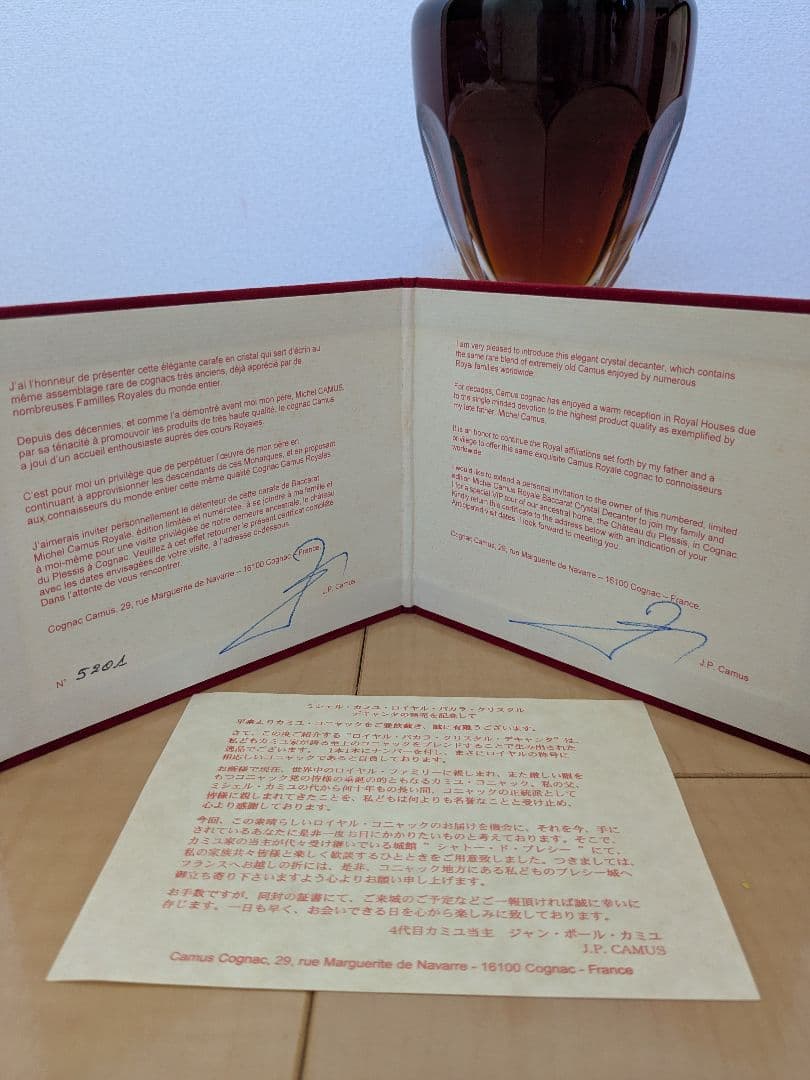 J'ai l'honneur de présenter cette élégante carafe en cristal qui sert d'écrin au
même assemblage rare de cognacs très anciens, déjà apprécié par de
nombreuses Familles Royales du monde entier.
Depuis des décennies, et comme l'a démontré avant moi mon père, Michel CAMUS,
par sa ténacité à promouvoir les produits de très haute qualité, le cognac Camus
a joui d'un accueil enthousiaste auprès des cours Royales.
C'est pour moi un privilège que de perpétuer l'œuvre de mon père en
continuant à approvisionner les descendants de ces Monarques, et en proposant
aux connaisseurs du monde entier cette même qualité Cognac Camus Royales.
J'aimerais inviter personnellement le détenteur de cette carafe de Baccarat
Michel Camus Royale, édition limitée et numérotée, à se joindre à ma famille et
à moi-même pour une visite privilégiée de notre demeure ancestrale, le château
du Plessis à Cognac. Veuillez à cet effet retourner le présent certificat complété
avec les dates envisagées de votre visite, à l'adresse ci-dessous.
Dans l'attente de vous rencontrer.
Cognac Camus, 29, rue Marguerite de Navarre – 16100 Cognac – France.
J.P. Camus
N° 5201
I am very pleased to introduce this elegant crystal decanter, which contains
the same rare blend of extremely old Camus enjoyed by numerous
Royal families worldwide.
For decades, Camus cognac has enjoyed a warm reception in Royal Houses due
to the single minded devotion to the highest product quality as exemplified by
my late father, Michel Camus.
It is an honor to continue the Royal affiliations set forth by my father and a
privilege to offer this same exquisite Camus Royale cognac to connoisseurs
worldwide.
I would like to extend a personal invitation to the owner of this numbered, limited
edition Michel Camus Royale Baccarat Crystal Decanter to join my family and
I for a special VIP tour of our ancestral home, the Château du Plessis, in Cognac.
Kindly return this certificate to the address below with an indication of your
anticipated visit dates. I look forward to meeting you.
Cognac Camus, 29, rue Marguerite de Navarre – 16100 Cognac – France.
J.P. Camus
ミシェル・カミュ・ロイヤル・バカラ・クリスタル
デキャンタの発売を記念して
平素よりカミユ・コニャックをご愛飲戴き、誠に有難うございます。
さて、この度ご紹介する"ロイヤル・バカラ・クリスタル・デキャンタ"は、
私どもカミユ家が誇る至上のコニャックをブレンドすることで生み出された
逸品でございます。 1本1本にナンバーを付し、まさにロイヤルの称号に
相応しいコニャックであると自負しております。
お陰様で現在、世界中のロイヤル・ファミリーに親しまれ、また厳しい眼を
もつコニャック党の皆様の垂涎の的ともなるカミユ・コニャック。私の父、
ミシェル・カミユの代から何十年もの長い間、コニャックの正統派として
皆様に親しまれてきたことを、私どもは何よりも名誉なことと受け止め、
心より感謝しております。
今回、この素晴らしいロイヤル・コニャックのお届けを機会に、それを今、手に
されているあなたに是非一度お目にかかりたいものと考えております。そこで、
カミユ家の当主が代々受け継いでいる城館 " シャトー・ド・プレシー " にて、
私の家族共々皆様と楽しく歓談するひとときをご用意致しました。つきましては、
フランスへお越しの折には、是非、コニャック地方にある私どものプレシー城へ
御立ち寄り下さいますよう心よりお願い申し上げます。
お手数ですが、同封の証書にて、ご来城のご予定などご一報頂ければ誠に幸いに
存じます。一日も早く、お会いできる日を心から楽しみに致しております。
4代目カミユ当主 ジャン・ポール・カミユ
J.P. CAMUS
Camus Cognac, 29, rue Marguerite de Navarre - 16100 Cognac - France